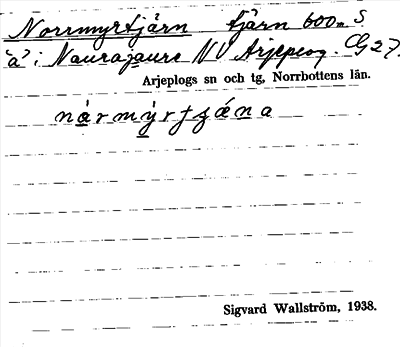 Norrmyrtjärn tjärn 600m S
"a" i Naurajaure NV Arjeplog. CG 27.
Arjeplogs sn och tg, Norrbottens län.
nàrmýrtjǽna
Sigvard Wallström, 1938.